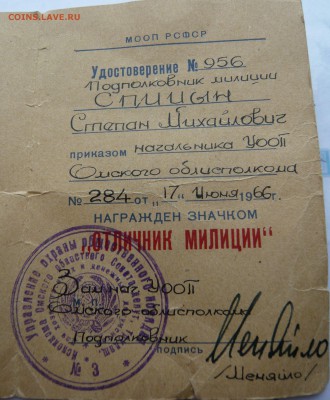 COINS.LAVE.RU
МООП РСФСР
Удостоверение № 956.
Подполковник милиции
СПИЦЫН
Степан Михайлович
приказом начальника УООП
Омского облисполкома
№ 284 от „17" июня 1966г.
НАГРАЖДЕН ЗНАЧКОМ
„ОТЛИЧНИК МИЛИЦИИ"
Зам. нач УООП
м. п.
Омского облисполкома
Подполковник
подпись
Меняйло
/Меняйло/
Управление охраны общественного порядка
Омского областного Совета
№ 3